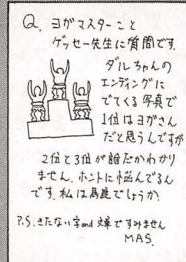 Q. ヨガマスターこと
ゲッセー先生に質問です.
ダルちゃんの
エンディングに
でてくる写真で
1位はヨガさん
だと思うんですが
2位と3位が誰だかわかり
ません. ホントに悩んでるん
です. 私は馬鹿でしょうか.
P.S. きたない字and 文章ですみません
M.A.S.